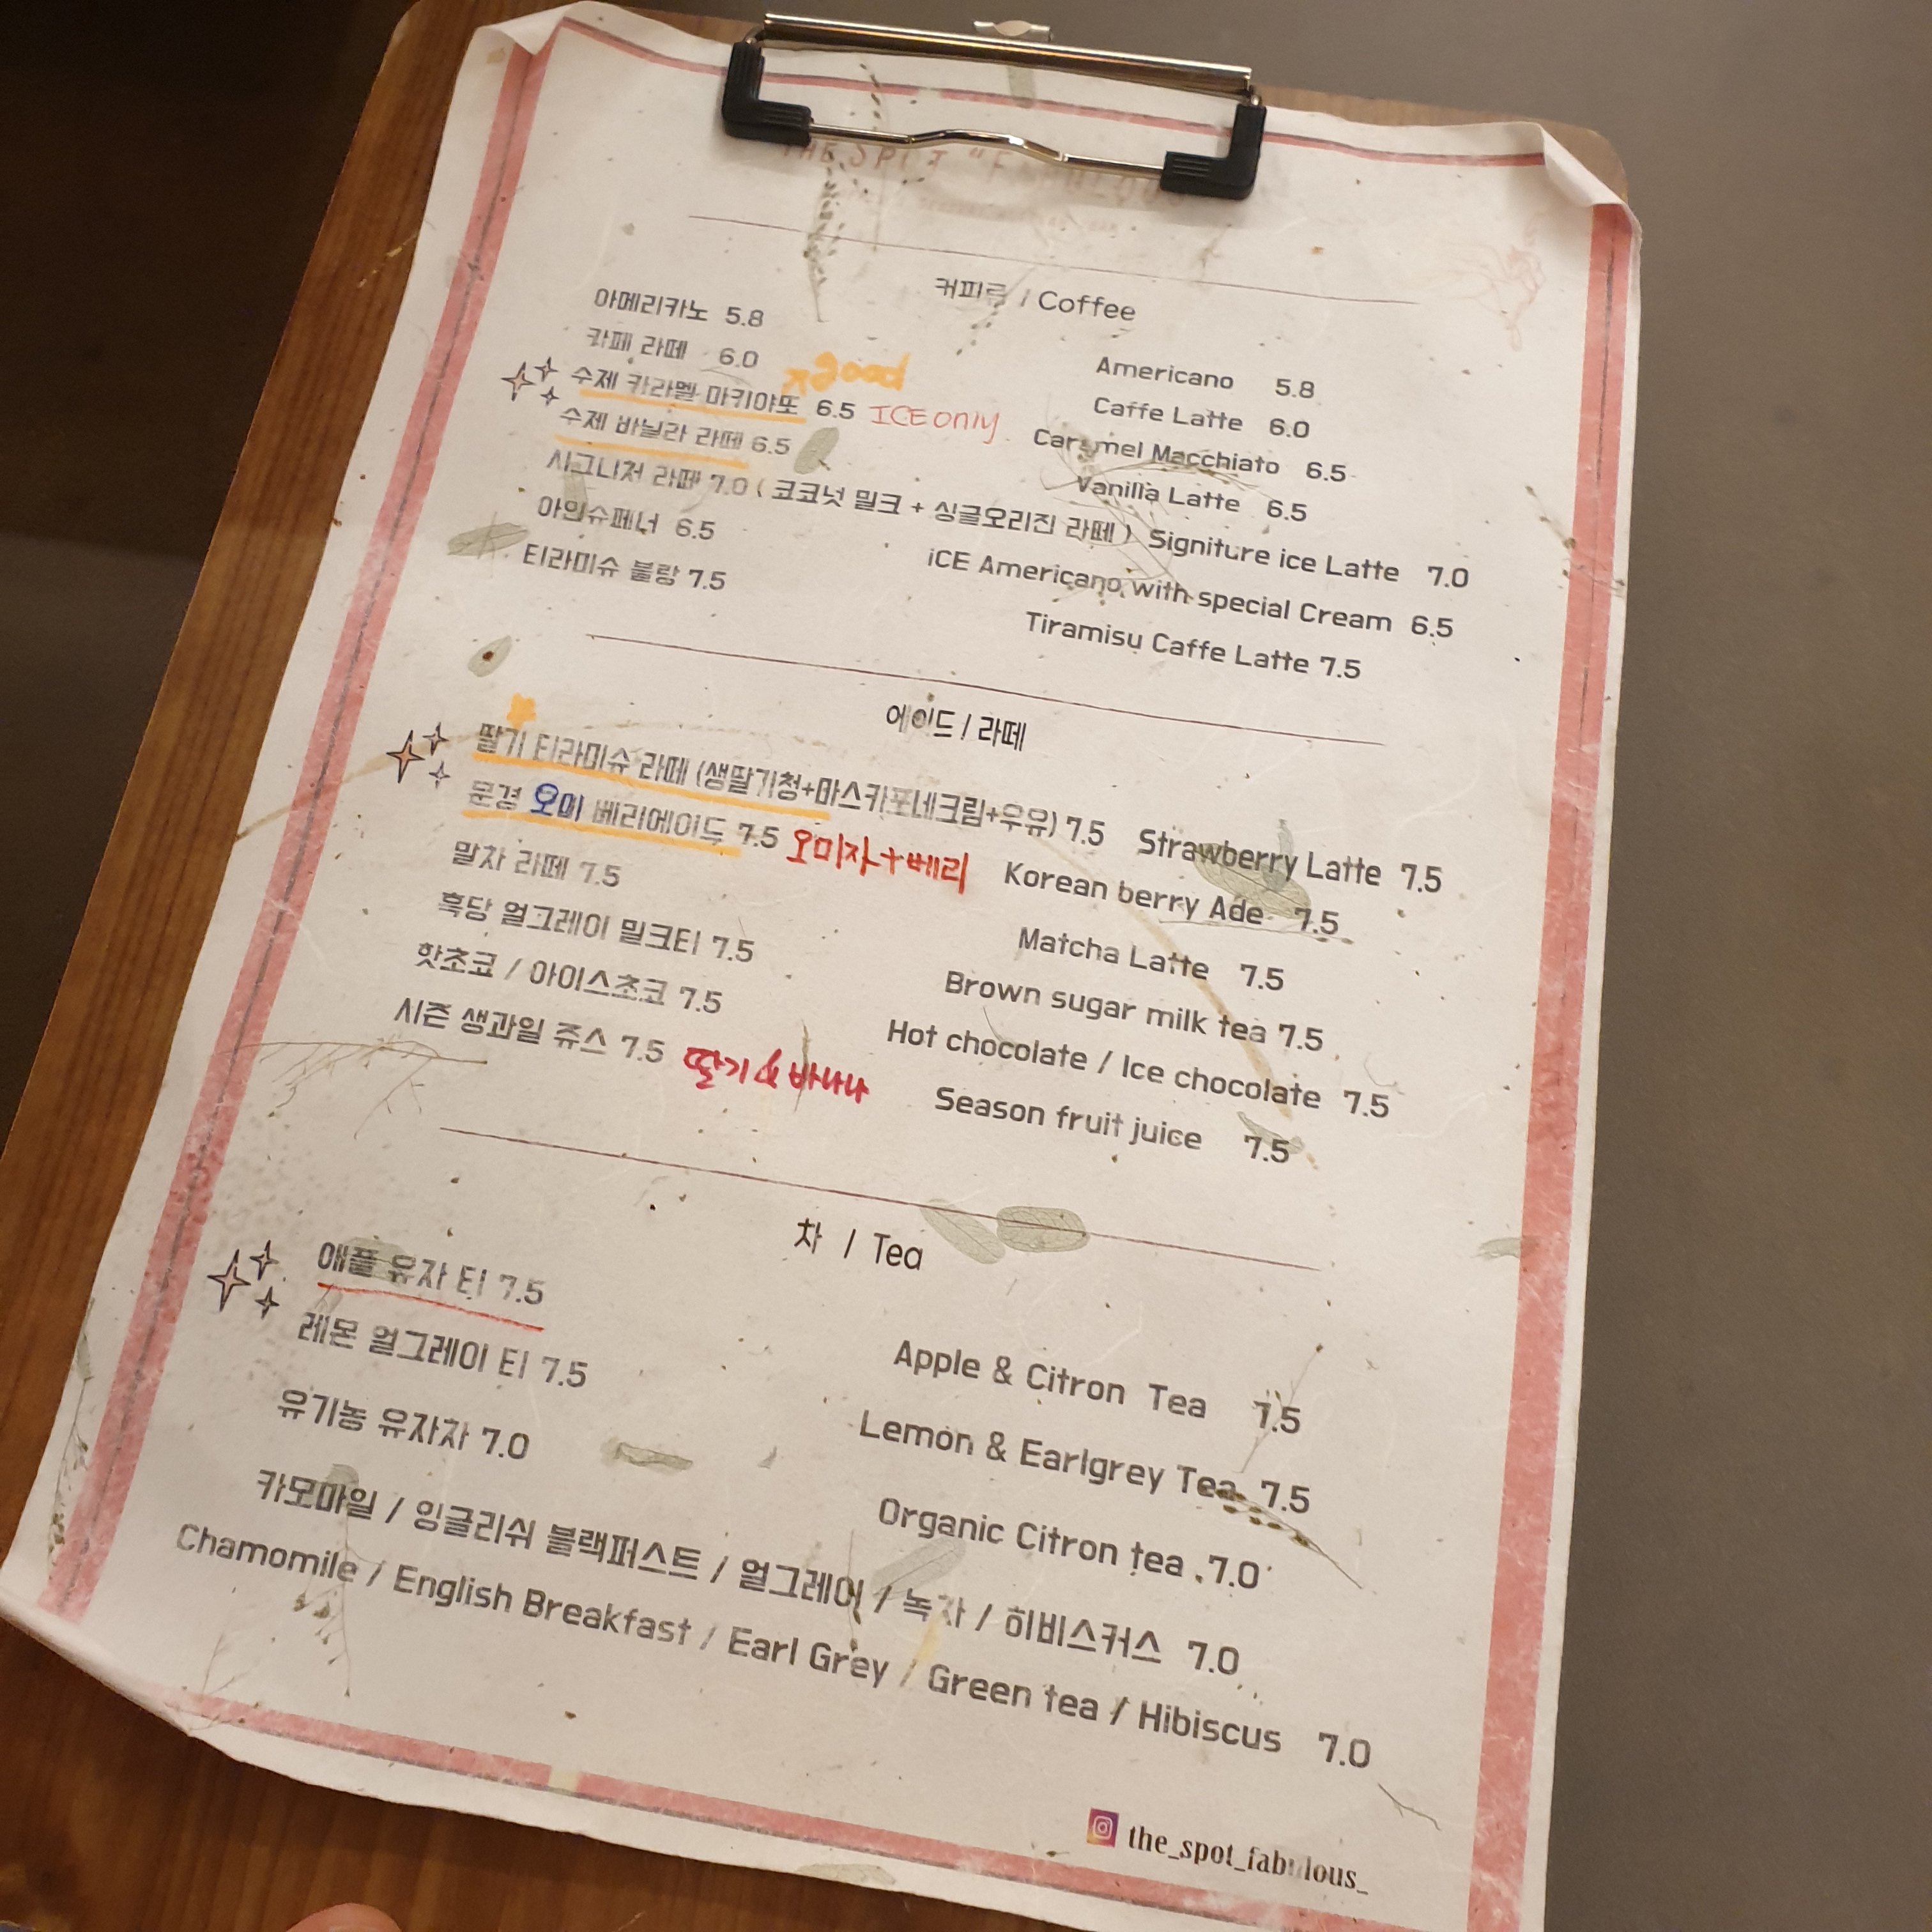 THE SPOT "FABULOUS"
커피류 / Coffee
아메리카노 5.8
Americano 5.8
카페 라떼 6.0
Caffe Latte 6.0
good
수제 카라멜 마키야또 6.5 ICE only
Caramel Macchiato 6.5
수제 바닐라 라떼 6.5
Vanilla Latte 6.5
시그니처 라떼 7.0 ( 코코넛 밀크 + 싱글오리진 라떼 ) Signiture ice Latte 7.0
아인슈페너 6.5
iCE Americano with special Cream 6.5
티라미슈 블랑 7.5
Tiramisu Caffe Latte 7.5
에이드 / 라떼
딸기 티라미슈 라떼 (생딸기청+마스카포네크림+우유) 7.5 Strawberry Latte 7.5
문경 오미 베리에이드 7.5 오미자+베리
Korean berry Ade 7.5
말차 라떼 7.5
Matcha Latte 7.5
흑당 얼그레이 밀크티 7.5
Brown sugar milk tea 7.5
핫초코 / 아이스초코 7.5
Hot chocolate / Ice chocolate 7.5
시즌 생과일 쥬스 7.5 딸기 & 바나나
Season fruit juice 7.5
차 / Tea
애플 유자 티 7.5
Apple & Citron Tea 7.5
레몬 얼그레이 티 7.5
Lemon & Earlgrey Tea 7.5
유기농 유자차 7.0
Organic Citron tea 7.0
카모마일 / 잉글리쉬 블랙퍼스트 / 얼그레이 / 녹차 / 히비스커스 7.0
Chamomile / English Breakfast / Earl Grey / Green tea / Hibiscus 7.0
the_spot_fabulous_